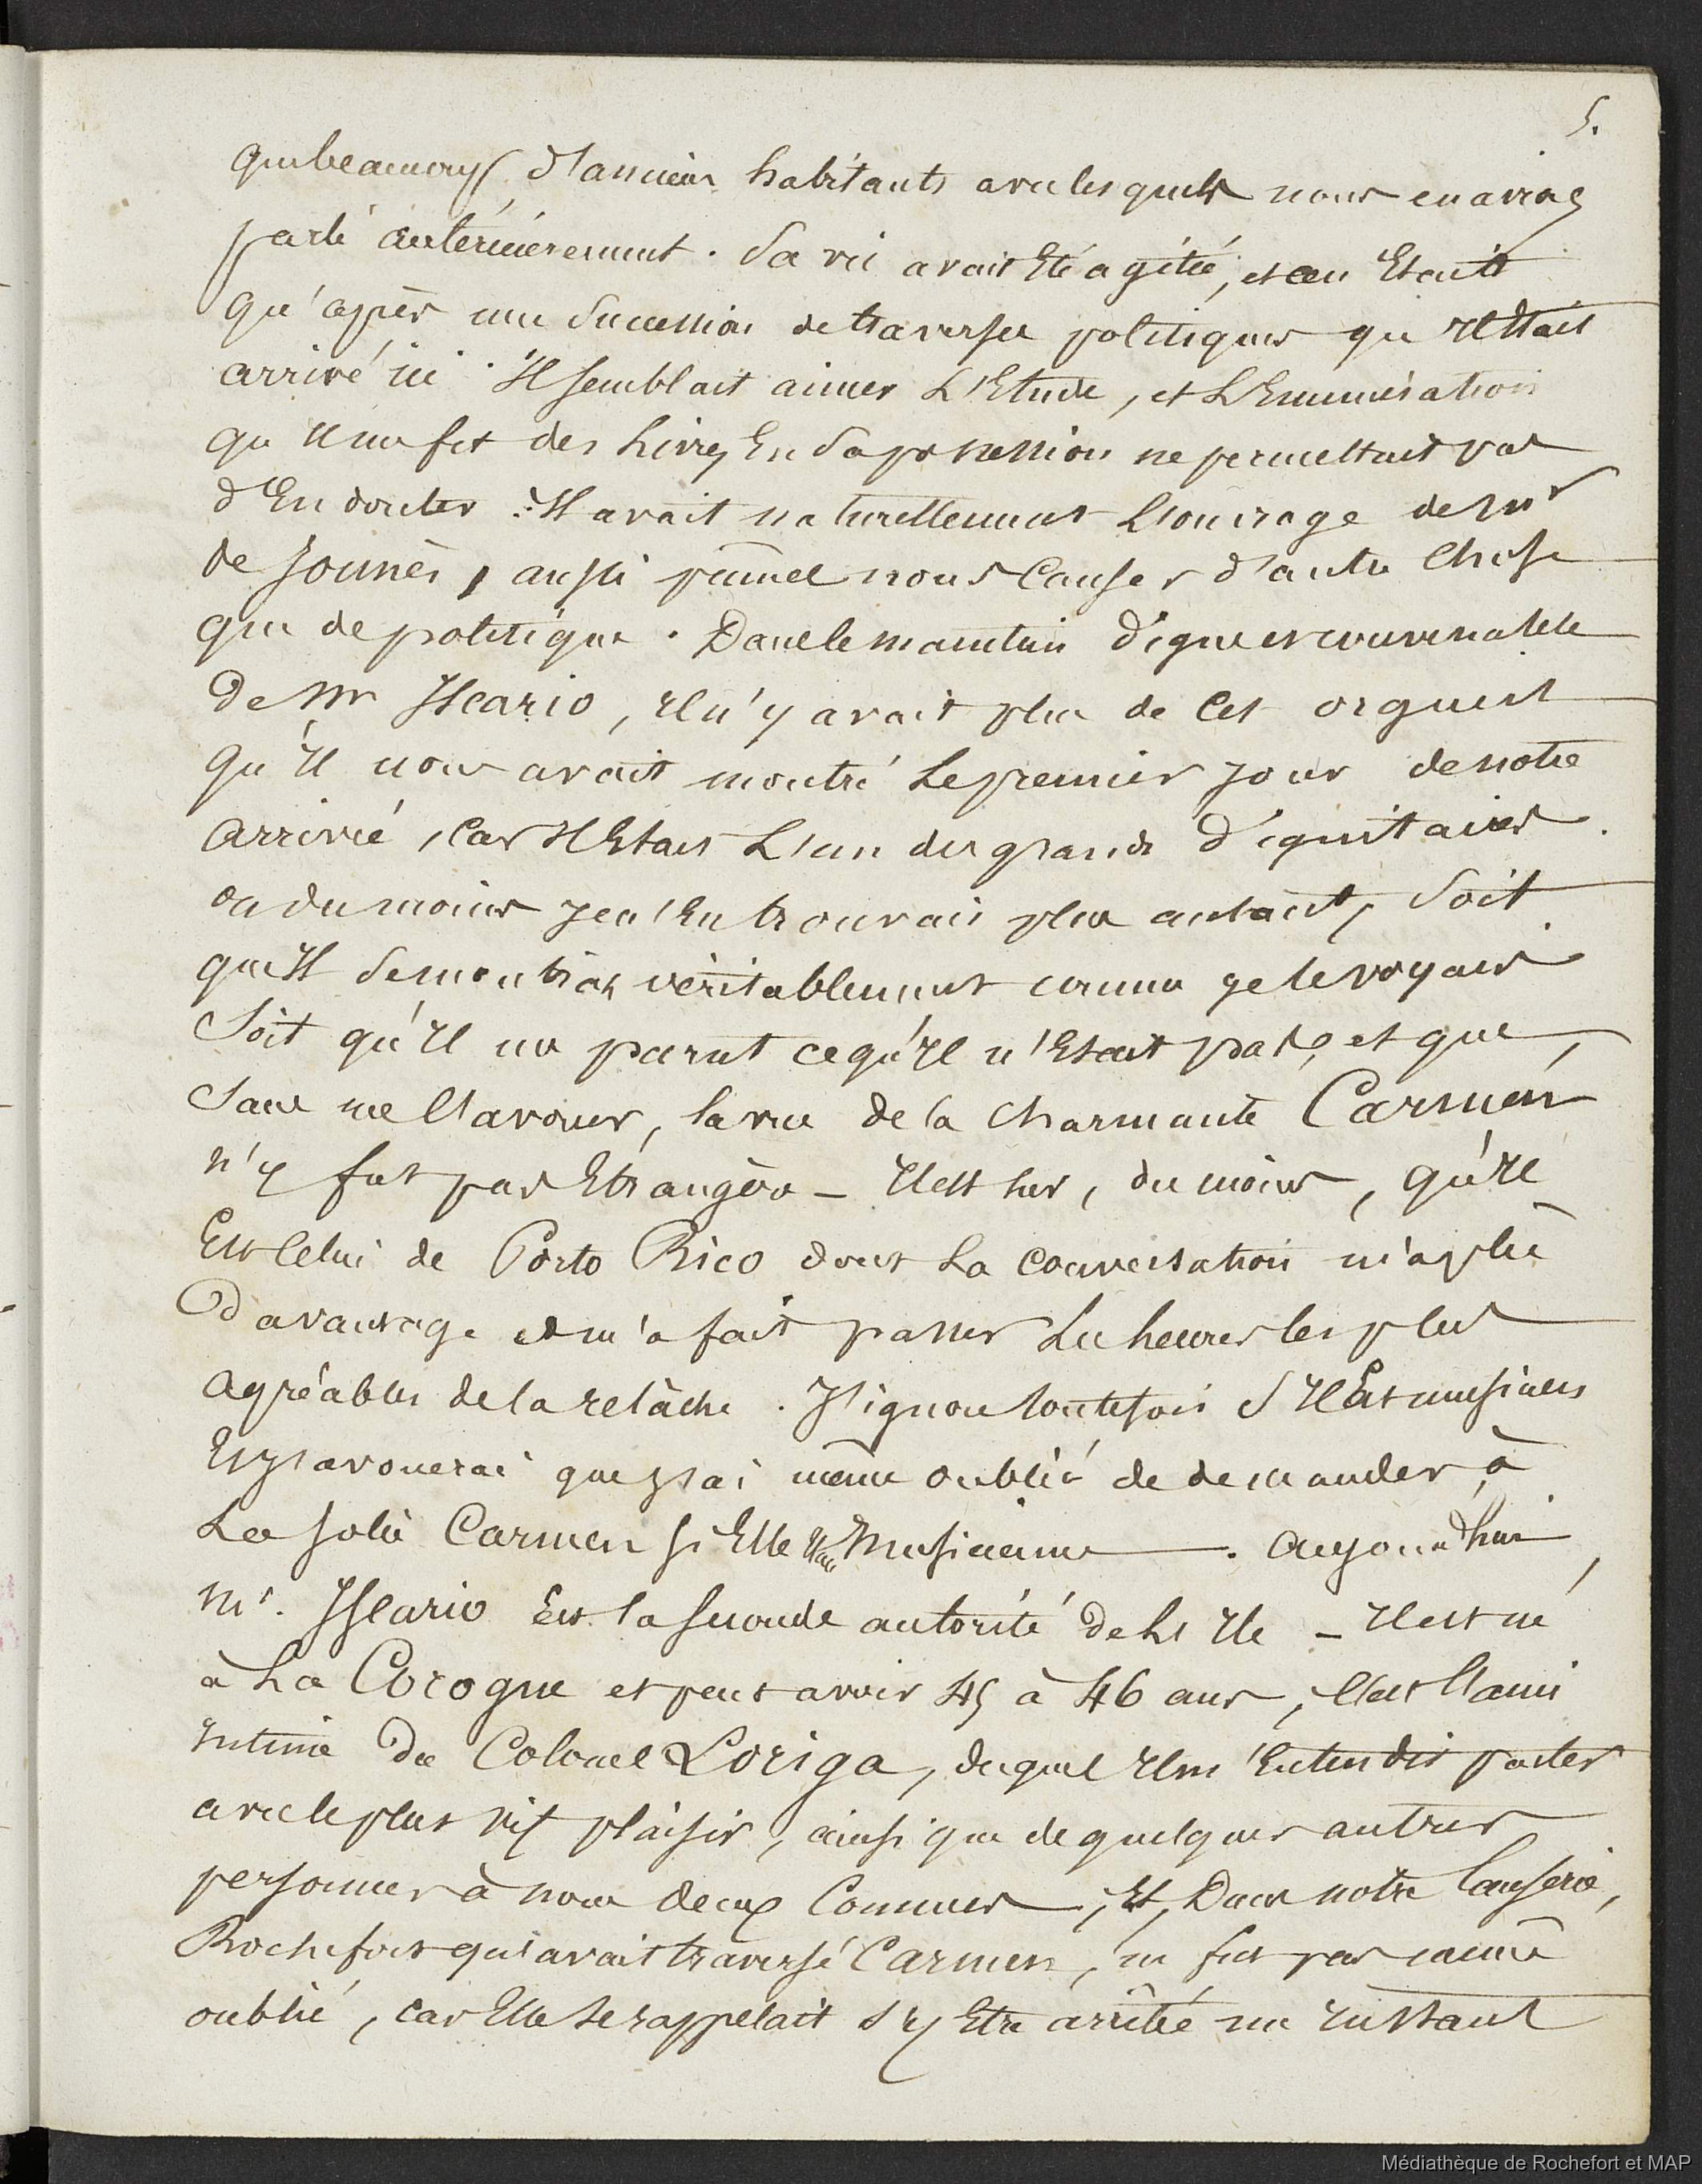 5.
que beaucoup d'anciens habitants avec lesquels nous en avions
parlé antérieurement. Sa vie avait Eté agitée, et ce n'Etait
qu'après une Succession de traverses politiques qu'Il Etait
arrivé ici. Il semblait aimer L'Etude, et L'Enumération
qu'Il me fit des Livres En Sa possession ne permettait pas
d'En douter. Il avait naturellement L'ouvrage de Mr
de Jonnès, aussi pûmes nous Causer d'autre Chose
que de politique. Dans le maintien digne et convenable
De Mr Iscario, Il n'y avait plus de Cet orgueil
qu'Il nous avait montré Le premier Jour de notre
arrivée, Car Il Etait L'un des grands Dignitaires.
ou du moins Je n'En trouvais plus autant, Soit
qu'Il Se montrât véritablement comme Je le voyais
Soit qu'Il me parut ce qu'Il n'Etait pas, et que,
Sans me L'avouer, la vue de la Charmante Carmen
n'y fut pas Etrangère _ Il est sur, du moins, qu'Il
Est Celui de Porto Rico dont La Conversation m'a plu
Davantage et m'a fait passer Les heures les plus
agréables de la relâche. J'ignore toutefois S'Il Est musicien
Et J'avouerai que J'ai même oublié de demander à
La Jolie Carmen si Elle Etait Musicienne. aujourd'hui,
Mr. Iscario Est la seconde autorité de L'Ile _ Il est né
à La Corogne et peut avoir 45 à 46 ans, Il est L'ami
Intime du Colonel Loriga, duquel Il m'Entendit parler
avec le plus vif plaisir, ainsi que de quelques autres
personnes à nous deux Connues, Et, Dans notre Causerie,
Rochefort qu'avait traversé Carmen, ne fut pas même
oublié, car Elle Se rappelait S'y Etre arrêtée un Instant
Médiathèque de Rochefort et MAP